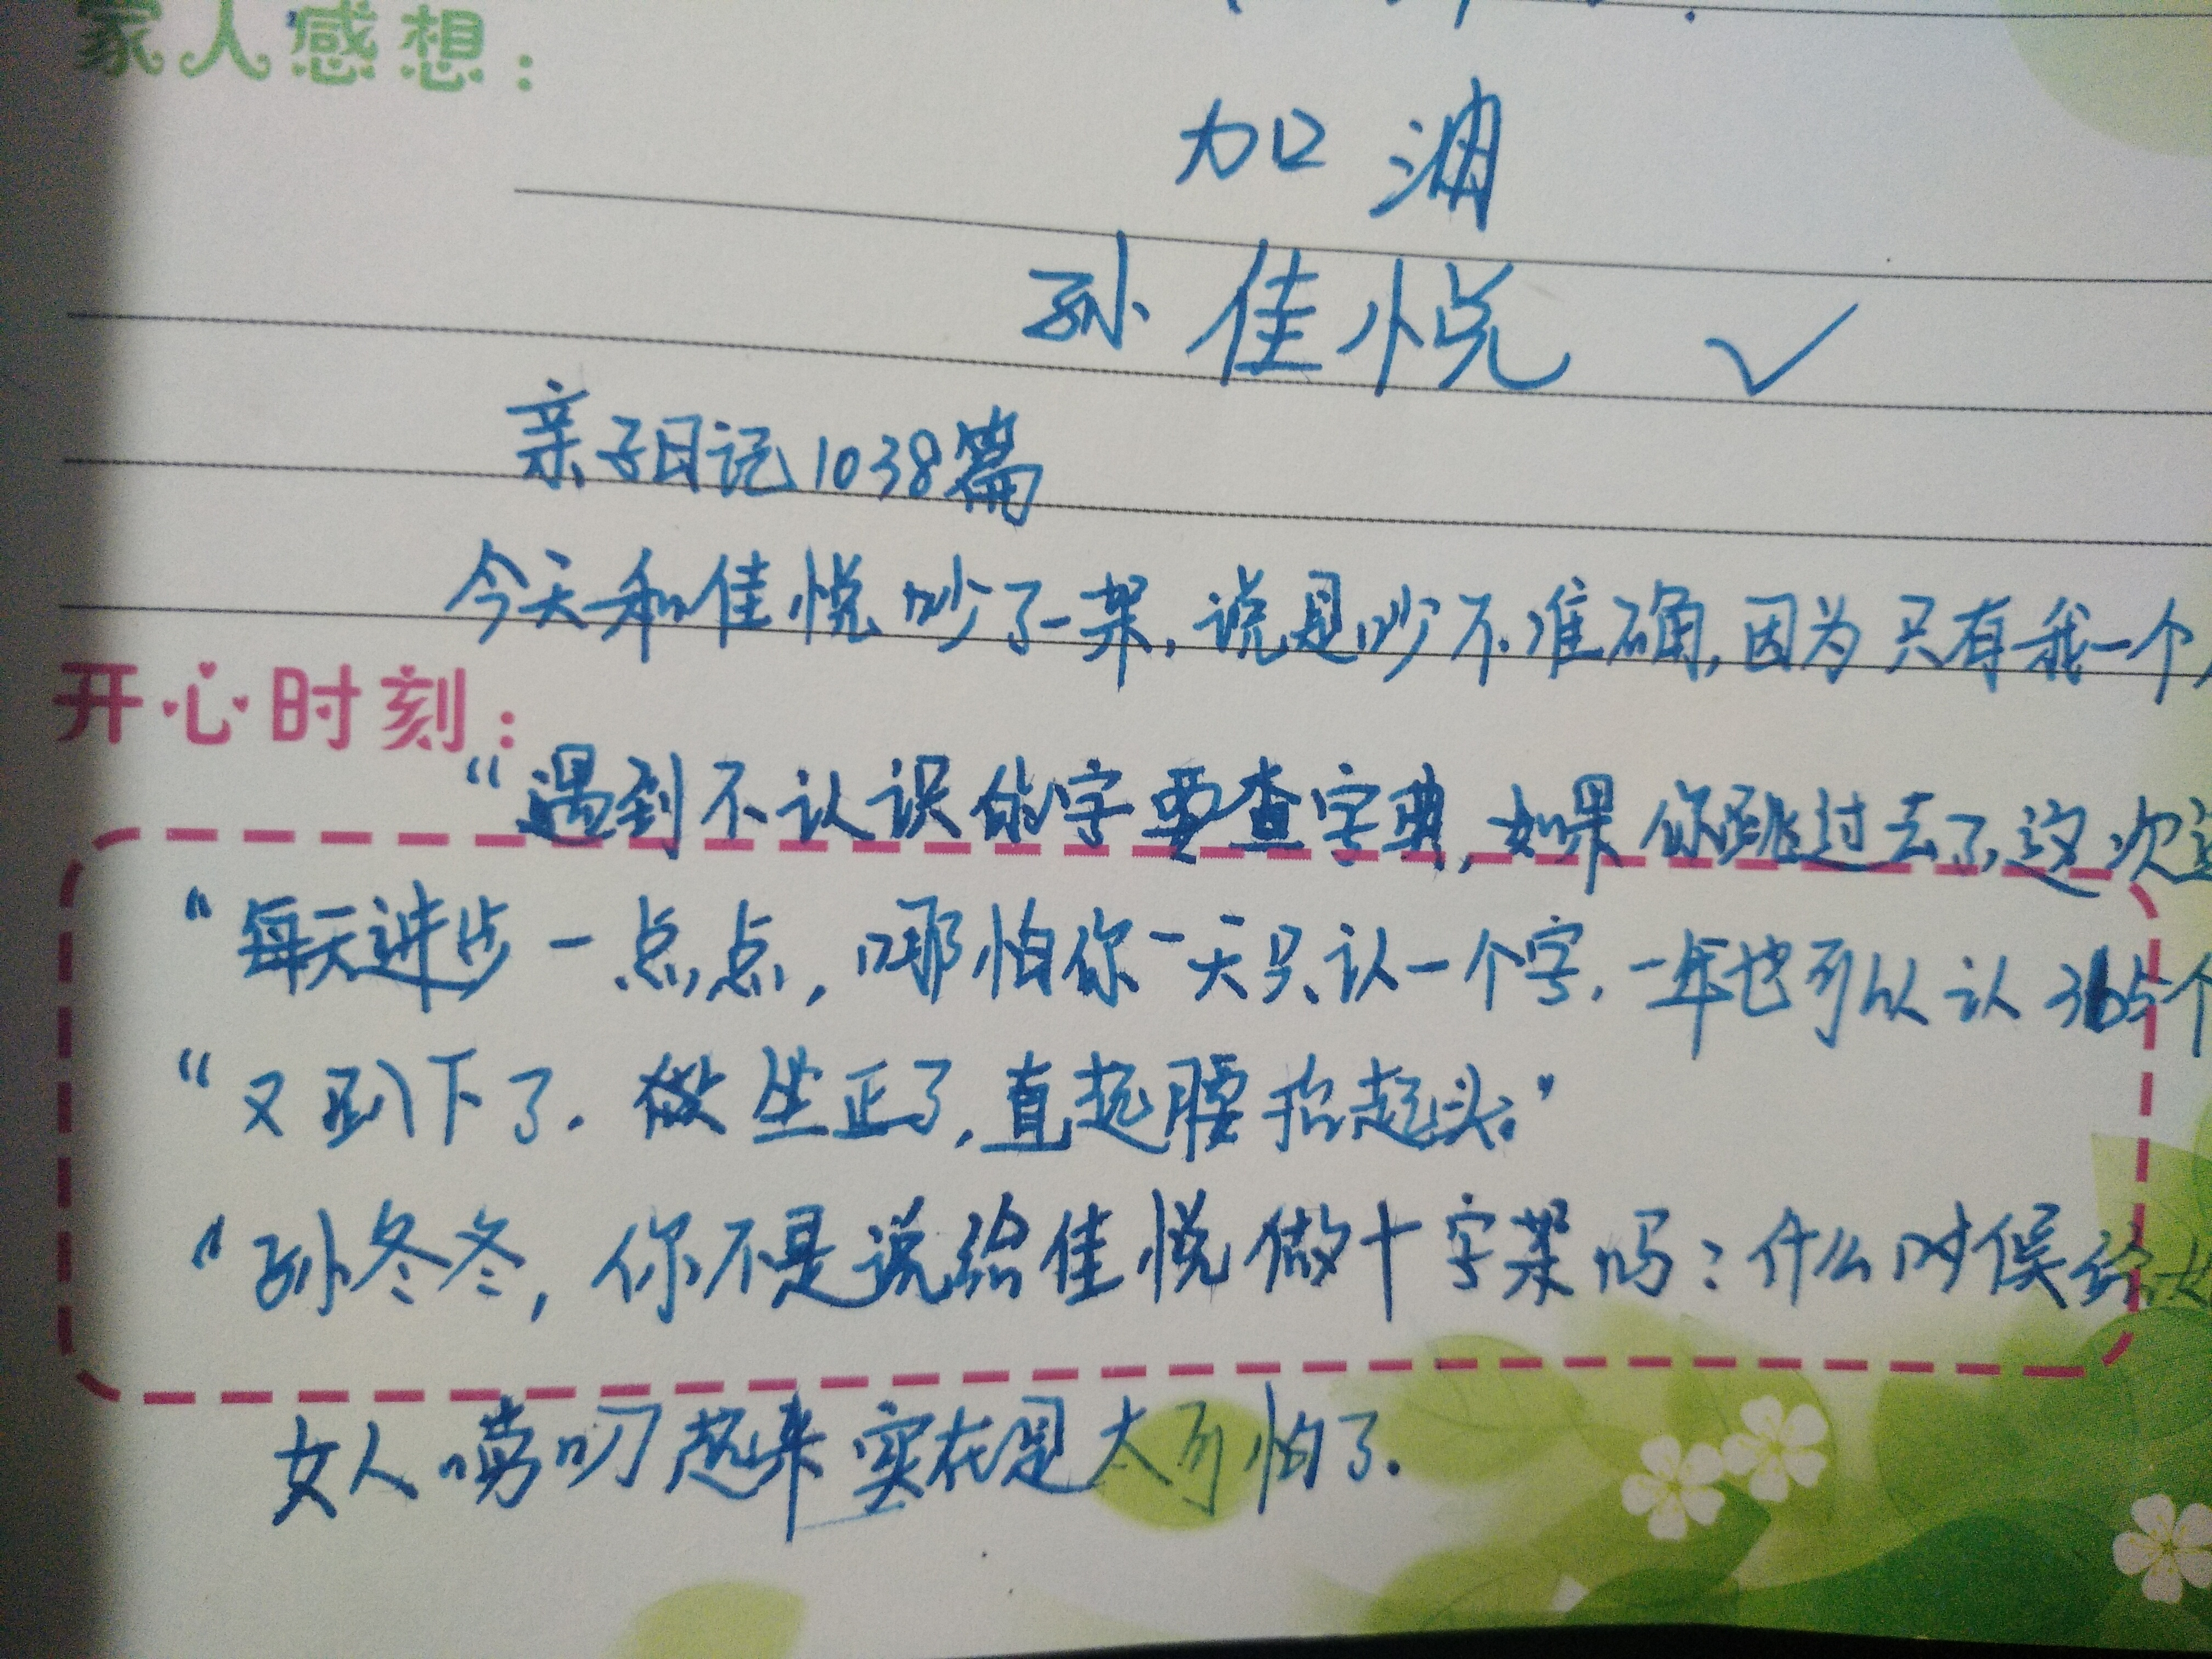 家人感想：
加油
孙佳悦 ✓
亲子日记1038篇
今天和佳悦吵了一架，说是吵不准确，因为只有我一个
开心时刻：
“遇到不认识的字要查字典，如果你跳过去了，这次
“每天进步一点点，哪怕你一天只认一个字，一年也可以认365个
“又趴下了．做坐正了，直起腰抬起头。”
“孙冬冬，你不是说给佳悦做十字架吗？什么时候给
女人唠叨起来实在是太可怕了．